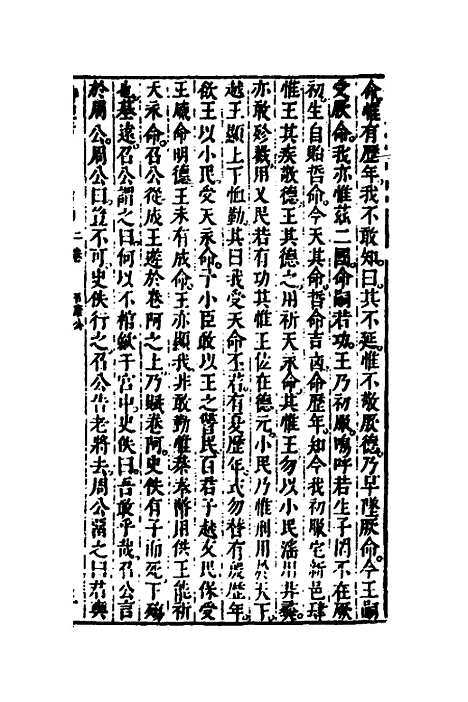 命惟有歷年我不敢知曰其不延惟不敬厥德乃早墜厥命今王嗣
受厥命我亦惟茲二國命嗣若功王乃初服嗚呼若生子罔不在厥
初生自貽哲命今天其命哲命吉凶命歷年知今我初服宅新邑肆
惟王其疾敬德王其德之用祈天永命其惟王勿以小民淫用非彝
亦敢殄戮用乂民若有功其惟王位在德元小民乃惟刑用於天下
越王顯上下勤恤其曰我受天命丕若有夏歷年式勿替有殷歷年
欲王以小民受天永命予小臣敢以王之讐民百君子越友民保受
王威命明德王末有成命王亦顯我非敢勤惟恭奉幣用供王能祈
天永命召公從成王遊於卷阿之上乃賦卷阿史佚有子而死下殤
也墓遠召公謂之曰何以不棺斂于宮中史佚曰吾敢乎哉召公言
於周公周公曰豈不可史佚行之召公告老將去周公留之曰君奭
二卷